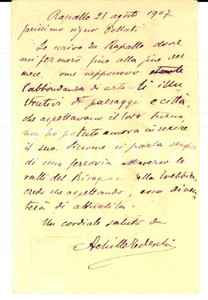 Rapallo 21 agosto 1907
carissimo signor Belluti
Le scrivo da Rapallo dove
mi fermerò fino alla fine del
mese. Ma sapponevo stante
l'abbondanza di articoli illu
strativi di paesaggi e città,
che aspettavano il loro turno,
non ho potuto ancora inserire
il suo. Siccome si parla sempre
di una ferrovia attraverso le
valli del Bisagno e della Trebbia,
credo che aspettando, esso diven
terà di attualità.
Un cordiale saluto da
Achille Tedeschi